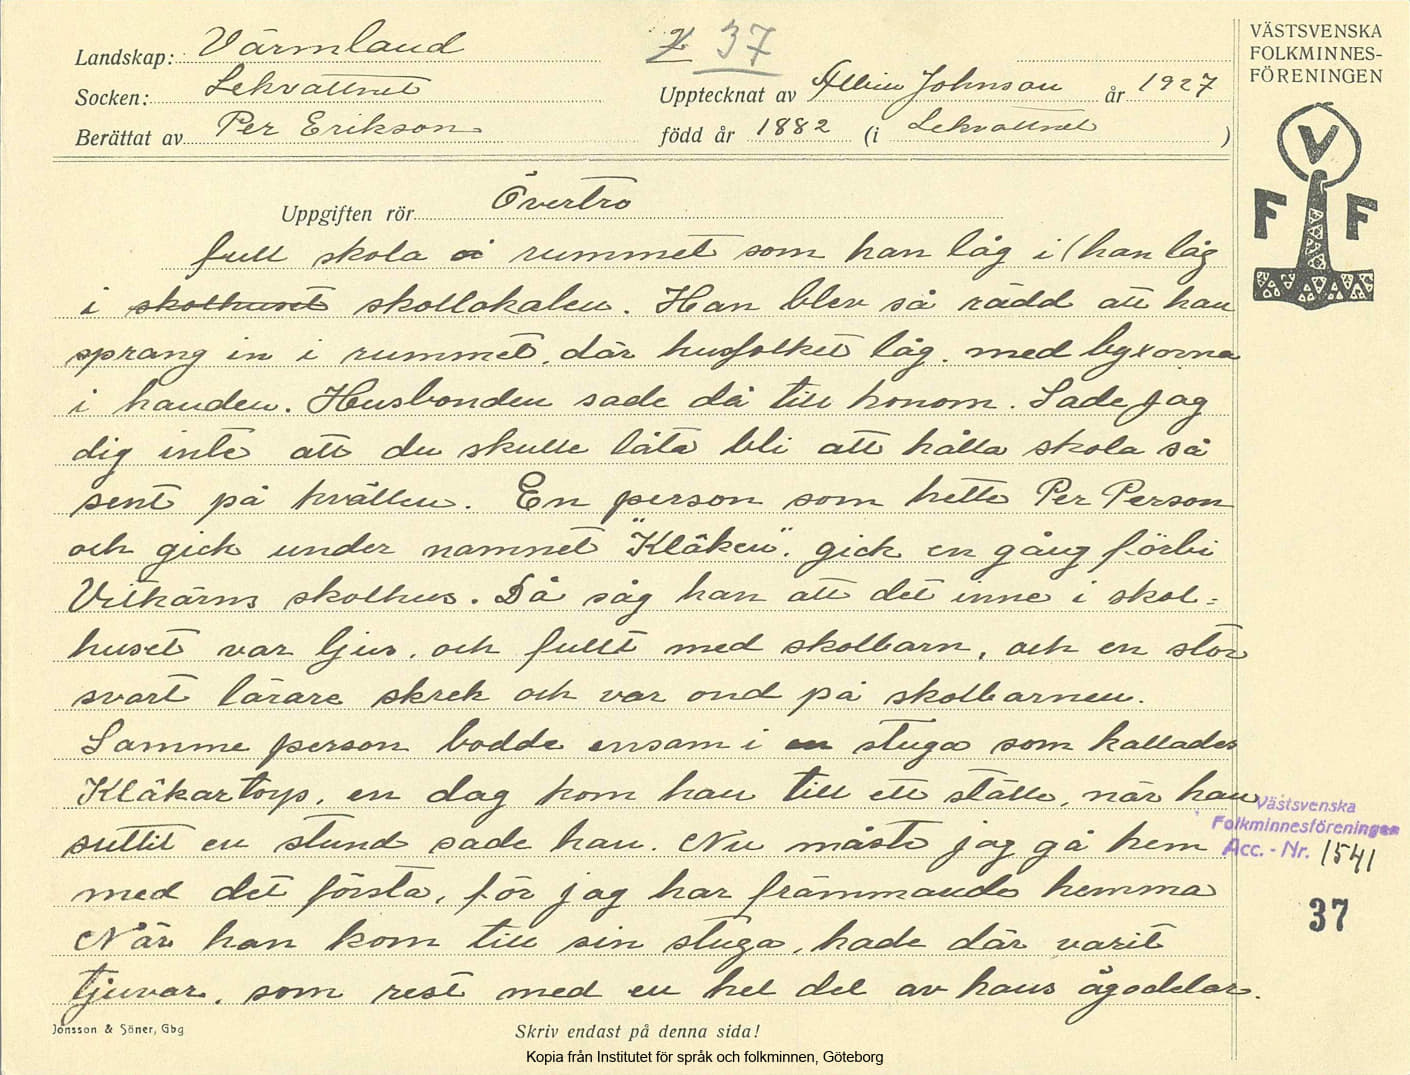 Landskap: Värmland
Z 37
Socken: Lekvattnet
Upptecknat av Albin Johnson år 1927
Berättat av Per Erikson
född år 1882 (i Lekvattnet )
VÄSTSVENSKA
FOLKMINNES-
FÖRENINGEN
V
F F
Uppgiften rör Övertro
full skola i rummet som han låg i (han låg
i skolhuset skollokalen. Han blev så rädd att han
sprang in i rummet, där husfolket låg, med byxorna
i handen. Husbonden sade då till honom. Sade jag
dig inte att du skulle låta bli att hålla skola så
sent på kvällen. En person som hette Per Person
och gick under namnet "Klâken", gick en gång förbi
Vitkärns skolhus. Då såg han att det inne i skol=
huset var ljus, och fullt med skolbarn, och en stor
svart lärare skrek och var ond på skolbarnen.
Samme person bodde ensam i en stuga som kallades
Klâkartorp, en dag kom han till ett ställe, när han
suttit en stund sade han. Nu måste jag gå hem
med det första, för jag har främmande hemma
När han kom till sin stuga, hade där varit
tjuvar, som rest med en hel del av hans ägodelar.
Västsvenska
Folkminnesföreningen
Acc. - Nr. 1541
37
Jonsson & Söner, Gbg
Skriv endast på denna sida!
Kopia från Institutet för språk och folkminnen, Göteborg